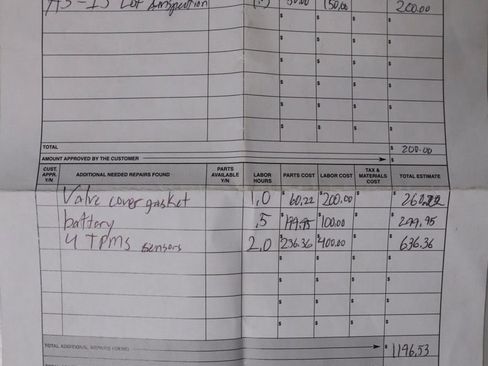 AS-IS Lot Inspection $ 50.00 $ 150.00 $ $ 200.00
$ $ $ $
$ $ $ $
$ $ $ $
$ $ $ $
$ $ $ $
TOTAL $ 200.00
AMOUNT APPROVED BY THE CUSTOMER $
CUST. APPR. Y/N ADDITIONAL NEEDED REPAIRS FOUND PARTS AVAILABLE Y/N LABOR HOURS PARTS COST LABOR COST TAX & MATERIALS COST TOTAL ESTIMATE
Valve cover gasket 1.0 $ 60.22 $ 200.00 $ $ 260.22
battery .5 $ 199.95 $ 100.00 $ $ 299.95
4 TPMS sensors 2.0 $ 236.36 $ 400.00 $ $ 636.36
$ $ $ $
$ $ $ $
$ $ $ $
TOTAL ADDITIONAL REPAIRS $ 1196.53